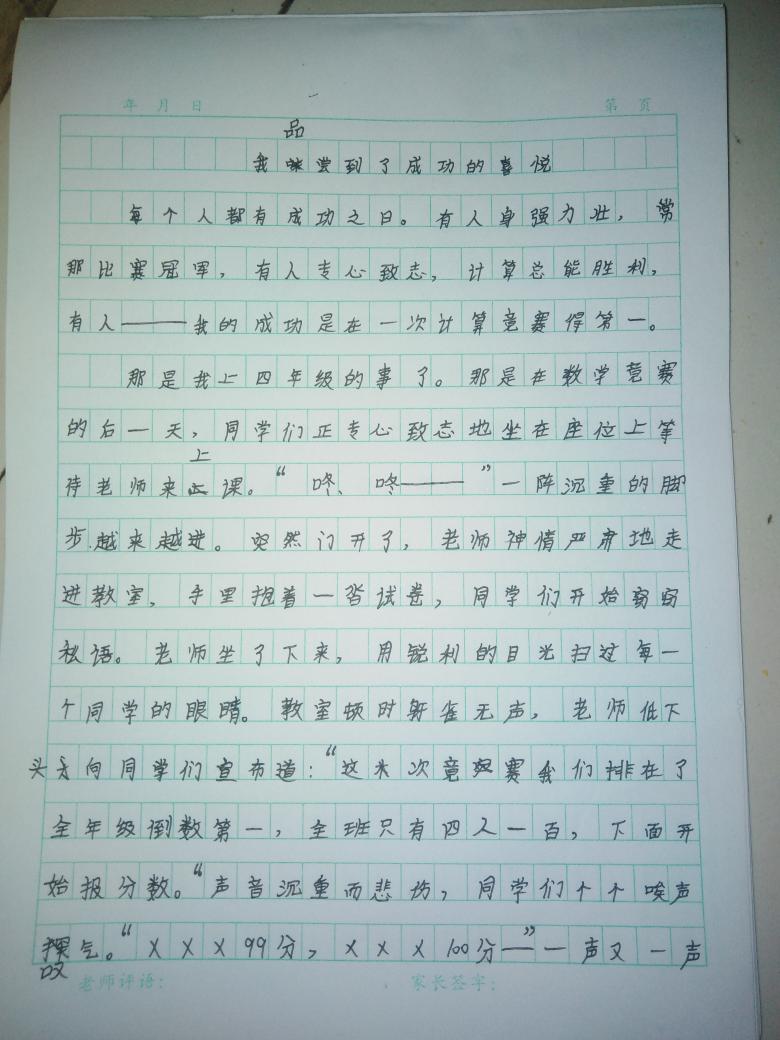 年 月 日 第 页
品
我尝到了成功的喜悦
每个人都有成功之日。有人身强力壮，常
那比赛冠军，有人专心致志，计算总能胜利，
有人——我的成功是在一次计算竟赛得第一。
那是我上四年级的事了。那是在数学竟赛
的后一天，同学们正专心致志地坐在座位上等
上
待老师来课。“咚、咚——”一阵沉重的脚
步越来越进。突然门开了，老师神情严肃地走
进教室，手里抱着一沓试卷，同学们开始窃窃
私语。老师坐了下来，用锐利的目光扫过每一
个同学的眼睛。教室顿时鸦雀无声，老师低下
头向同学们宣布道：“这次竟赛我们排在了
全年级倒数第一，全班只有四人一百，下面开
始报分数。“声音沉重而悲伤，同学们个个唉声
气。“XXX99分，XXX100分—”一声又一声
叹
老师评语： 家长签字：